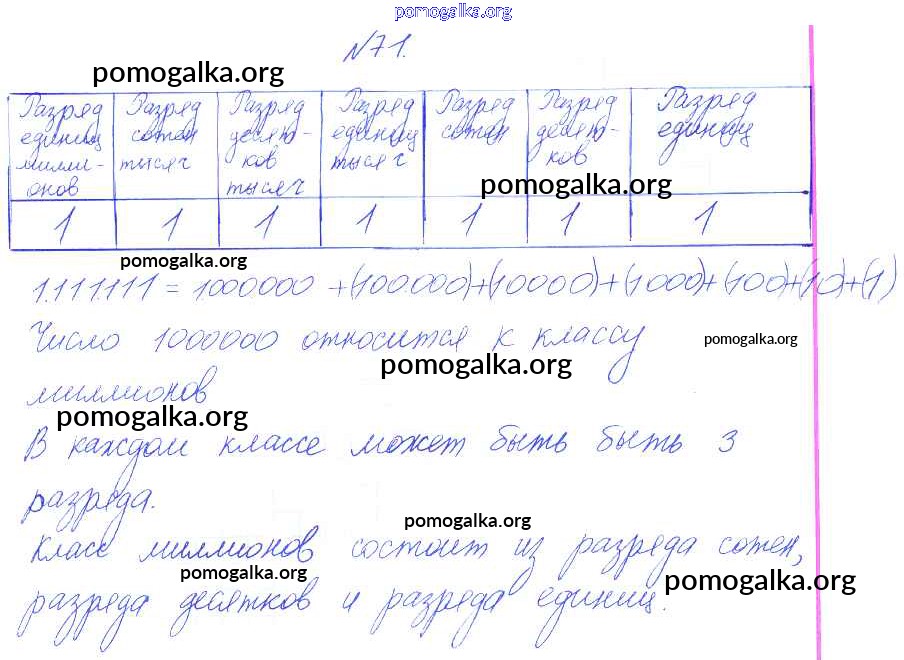 pomogalka.org
№71.
pomogalka.org
Разряд единиц милли-онов
Разряд сотен тысяч
Разряд десят-ков тысяч
Разряд единиц тысяч
Разряд сотен
Разряд десят-ков
Разряд единиц
pomogalka.org
1 1 1 1 1 1 1
pomogalka.org
1.111.111 = 1000000 +(100000)+(10000)+(1000)+(100)+(10)+(1)
Число 1000000 относится к классу
pomogalka.org
pomogalka.org
миллионов
pomogalka.org
В каждом классе может быть быть 3
разряда.
pomogalka.org
Класс миллионов состоит из разряда сотен,
pomogalka.org
pomogalka.org
разряда десятков и разряда единиц.